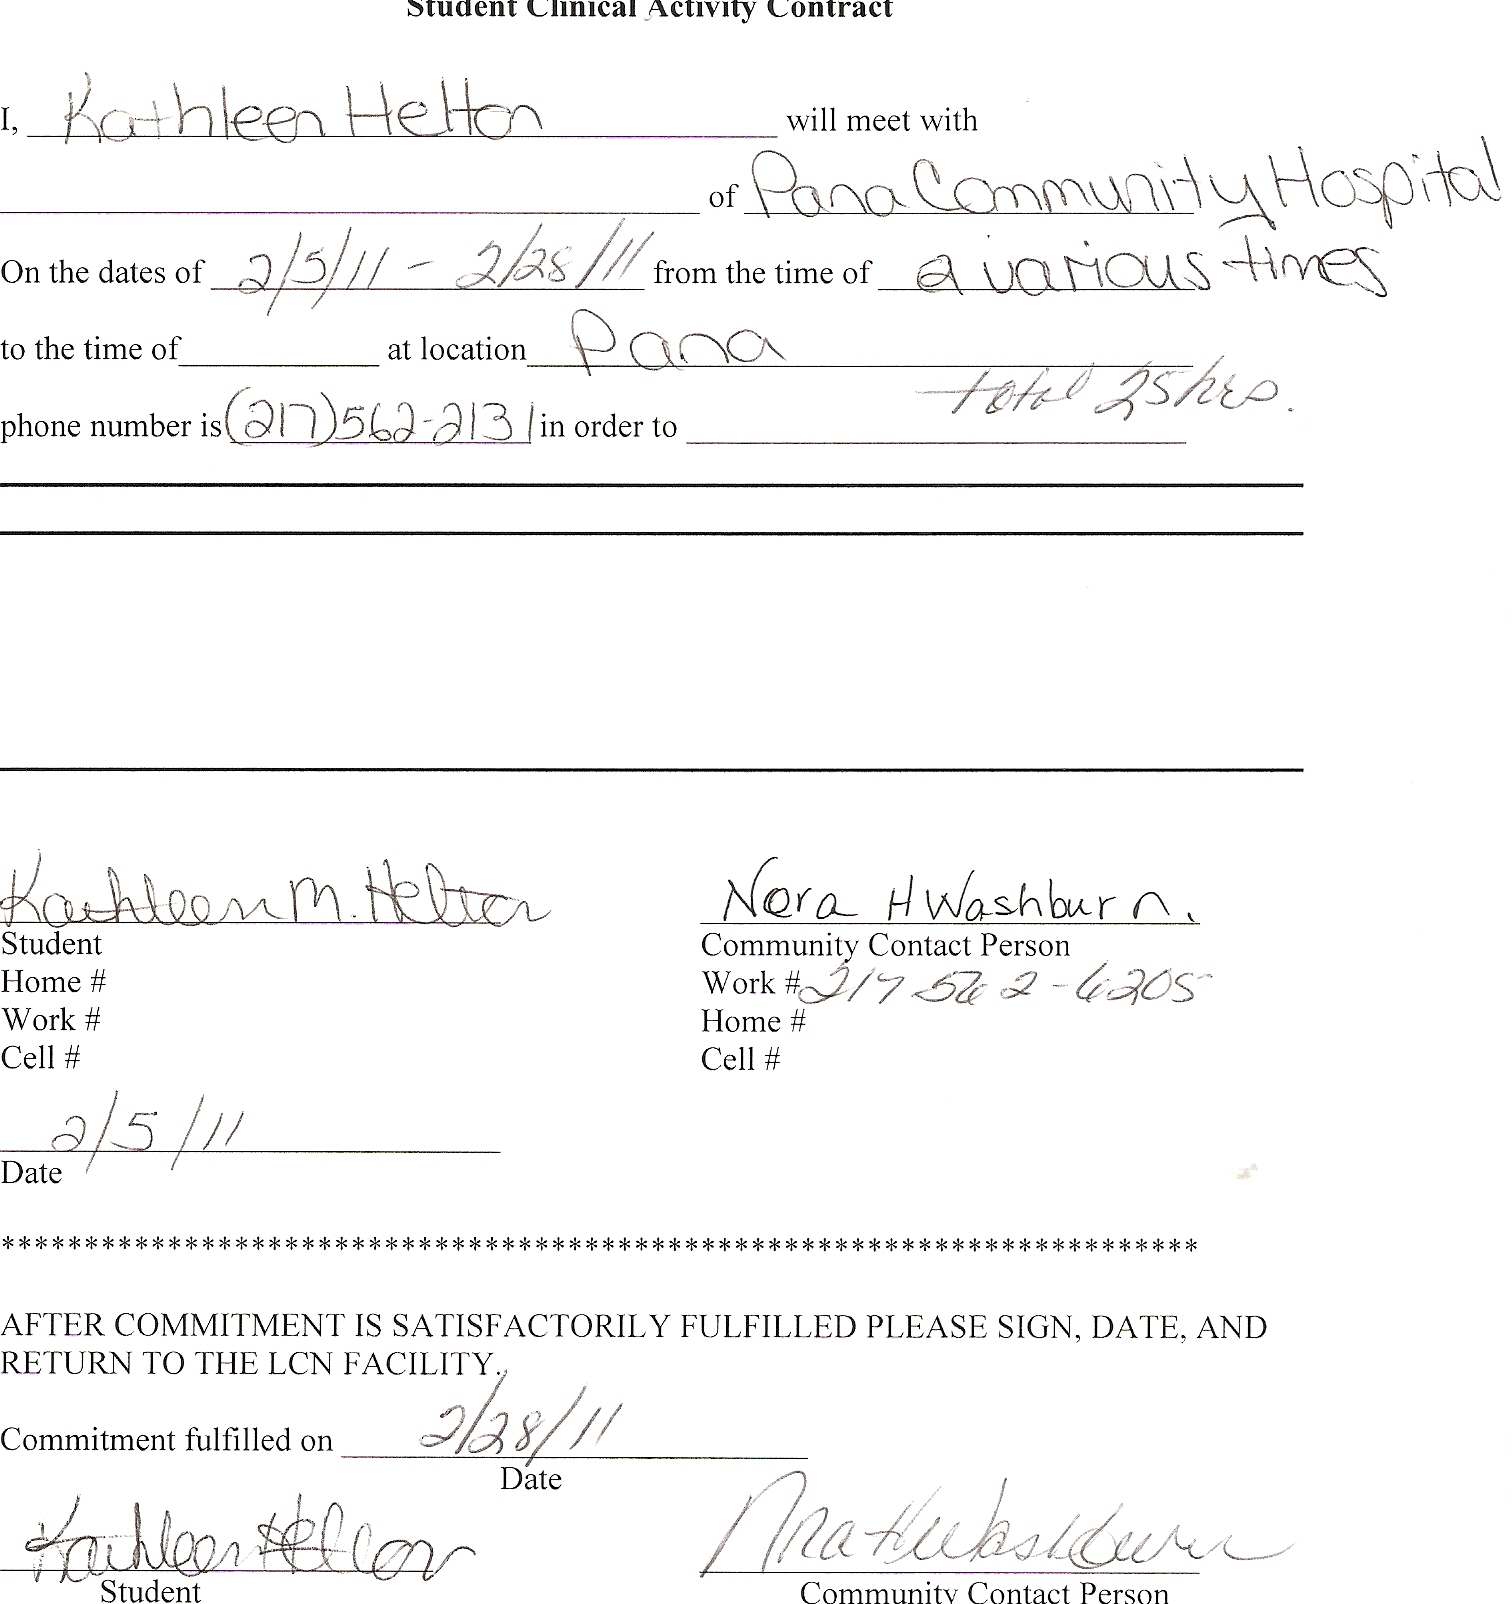 Student Clinical Activity Contract
I, Kathleen Helton will meet with
of Pana Community Hospital
On the dates of 2/5/11 - 2/28/11 from the time of @ various times
to the time of at location Pana
total 25 hrs.
phone number is (217)562-2131 in order to
Kathleen M. Helton Nora H Washburn.
Student Community Contact Person
Home # Work # 217 562-6205
Work # Home #
Cell # Cell #
2/5/11
Date
************************************************************************
AFTER COMMITMENT IS SATISFACTORILY FULFILLED PLEASE SIGN, DATE, AND
RETURN TO THE LCN FACILITY.
Commitment fulfilled on 2/28/11
Date
Kathleen Helton Nora H Washburn
Student Community Contact Person